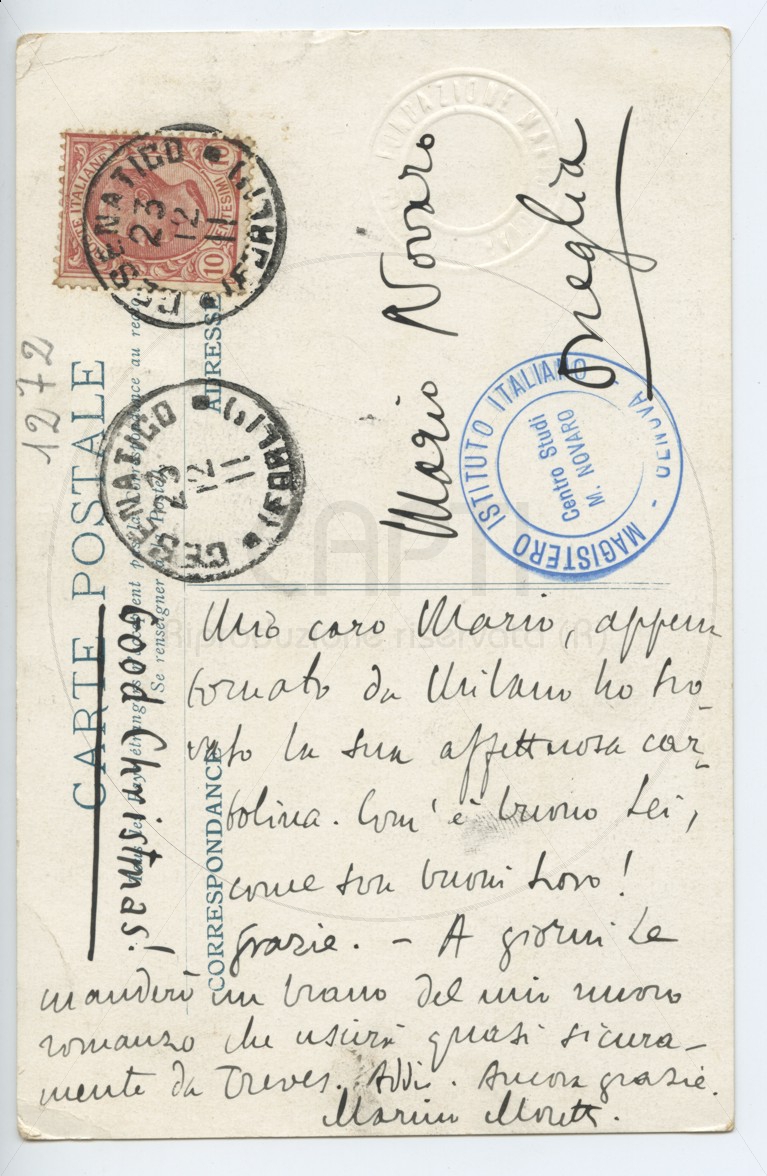 FONDAZIONE MARIO
POSTE ITALIANE
10 CENTESIMI 10
CESENATICO
(FORLI)
23
12
11
CESENATICO
(FORLI)
23
12
11
1272
CARTE POSTALE
Se renseigner
ADRESSE
CORRESPONDANCE
Mario Novaro
Oneglia
MAGISTERO ISTITUTO ITALIANO - GENOVA -
Centro Studi
M. NOVARO
CAPTI
Riproduzione riservata (R)
Good Christmas!
Mio caro Mario, appena
tornato da Milano ho tro-
vato la sua affettuosa car-
tolina. Com'è buono Lei,
come son buoni loro!
Grazie. – A giorni Le
manderò un brano del mio nuovo
romanzo che uscirà quasi sicura-
mente da Treves. Addio. Ancora grazie.
Marino Moretti.